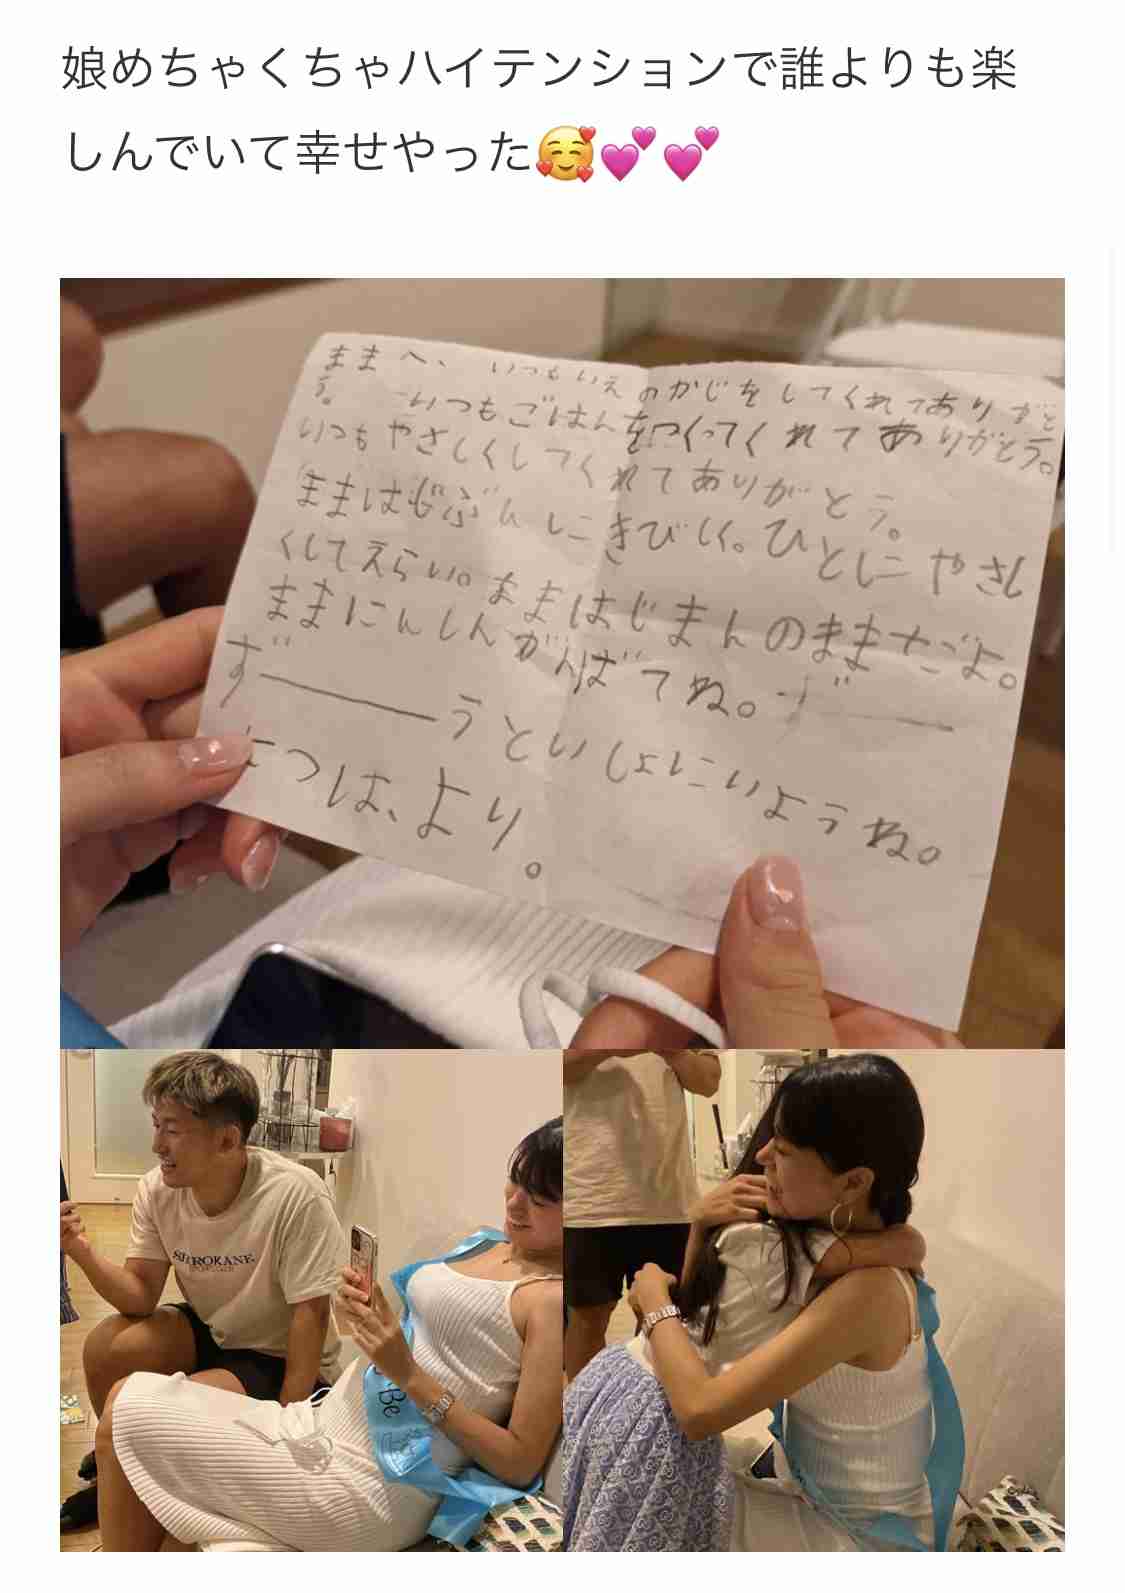 娘めちゃくちゃハイテンションで誰よりも楽
しんでいて幸せやった🥰💕💕
ままへ、いつもいえのかじをしてくれてありがと
う。いつもごはんをつくってくれてありがとう。
いつもやさしくしてくれてありがとう。
ままはじぶんにきびしく。ひとにやさし
くしてえらい。ままはじまんのままだよ。
ままにんしんがんばてね。ず
ず――――うといしょにいようね。
よつは、より。
SHIROKANE
Be